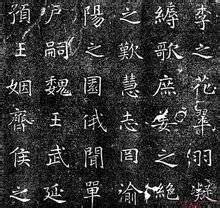 李之花翬羽凝
縟歌庶姜之絕
之歎慧志罔渝
陽之園俄聞單
戶嗣魏王武延
預王姻齊侯之